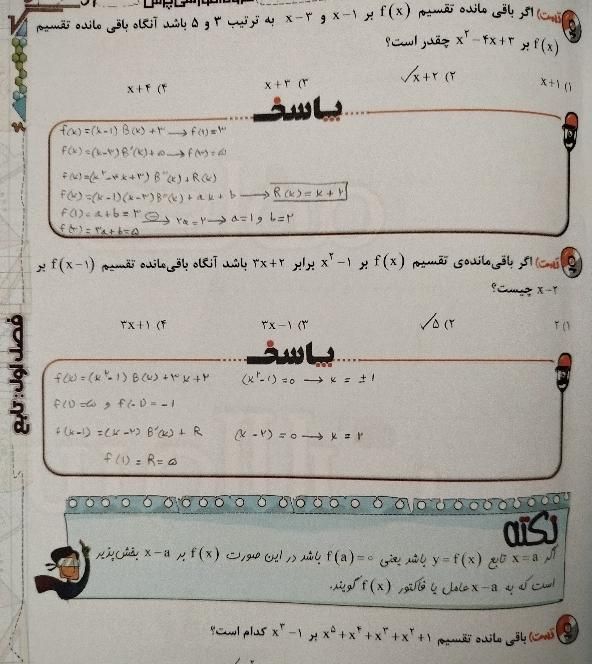 تست) اگر باقی مانده تقسیم f(x) بر x-۱ و x-۳ به ترتیب ۳ و ۵ باشد آنگاه باقی مانده تقسیم
f(x) بر x²-۴x+۳ چقدر است؟
۱) x+۱ ۲) x+۲ ✓ ۳) x+۳ ۴) x+۴
پاسخ
f(x)=(x-1) B(x)+۳ → f(1)=۳
f(x)=(x-۳) B'(x)+۵ → f(۳)=۵
f(x)=(x²-۴x+۳) B"(x)+R(x)
f(x)=(x-1)(x-۳)B"(x)+ax+b → R(x)=x+۲
f(1)=a+b=۳ ⊖→ ۲a=۲ → a=1 و b=۲
f(۳)=۳a+b=۵
تست) اگر باقی‌مانده‌ی تقسیم f(x) بر x²-۱ برابر ۳x+۲ باشد آنگاه باقی‌مانده تقسیم f(x-۱) بر
x-۲ چیست؟
۱) ۲ ۲) ۵ ✓ ۳) ۳x-۱ ۴) ۳x+۱
پاسخ
f(x)=(x²-1) B(x)+۳x+۲ (x²-1)=۰ → x=±1
f(1)=۵ و f(-1)=-1
f(x-1)=(x-۲) B'(x)+R (x-۲)=۰ → x=۲
f(1)=R=۵
فصل اول: تابع
نکته
اگر x=a تابع y=f(x) باشد یعنی f(a)=۰ باشد در این صورت f(x) بر x-a بخش‌پذیر
است که به x-a عامل یا فاکتور f(x) گویند.
تست) باقی مانده تقسیم x⁵+x⁴+x³+x²+۱ بر x³-۱ کدام است؟